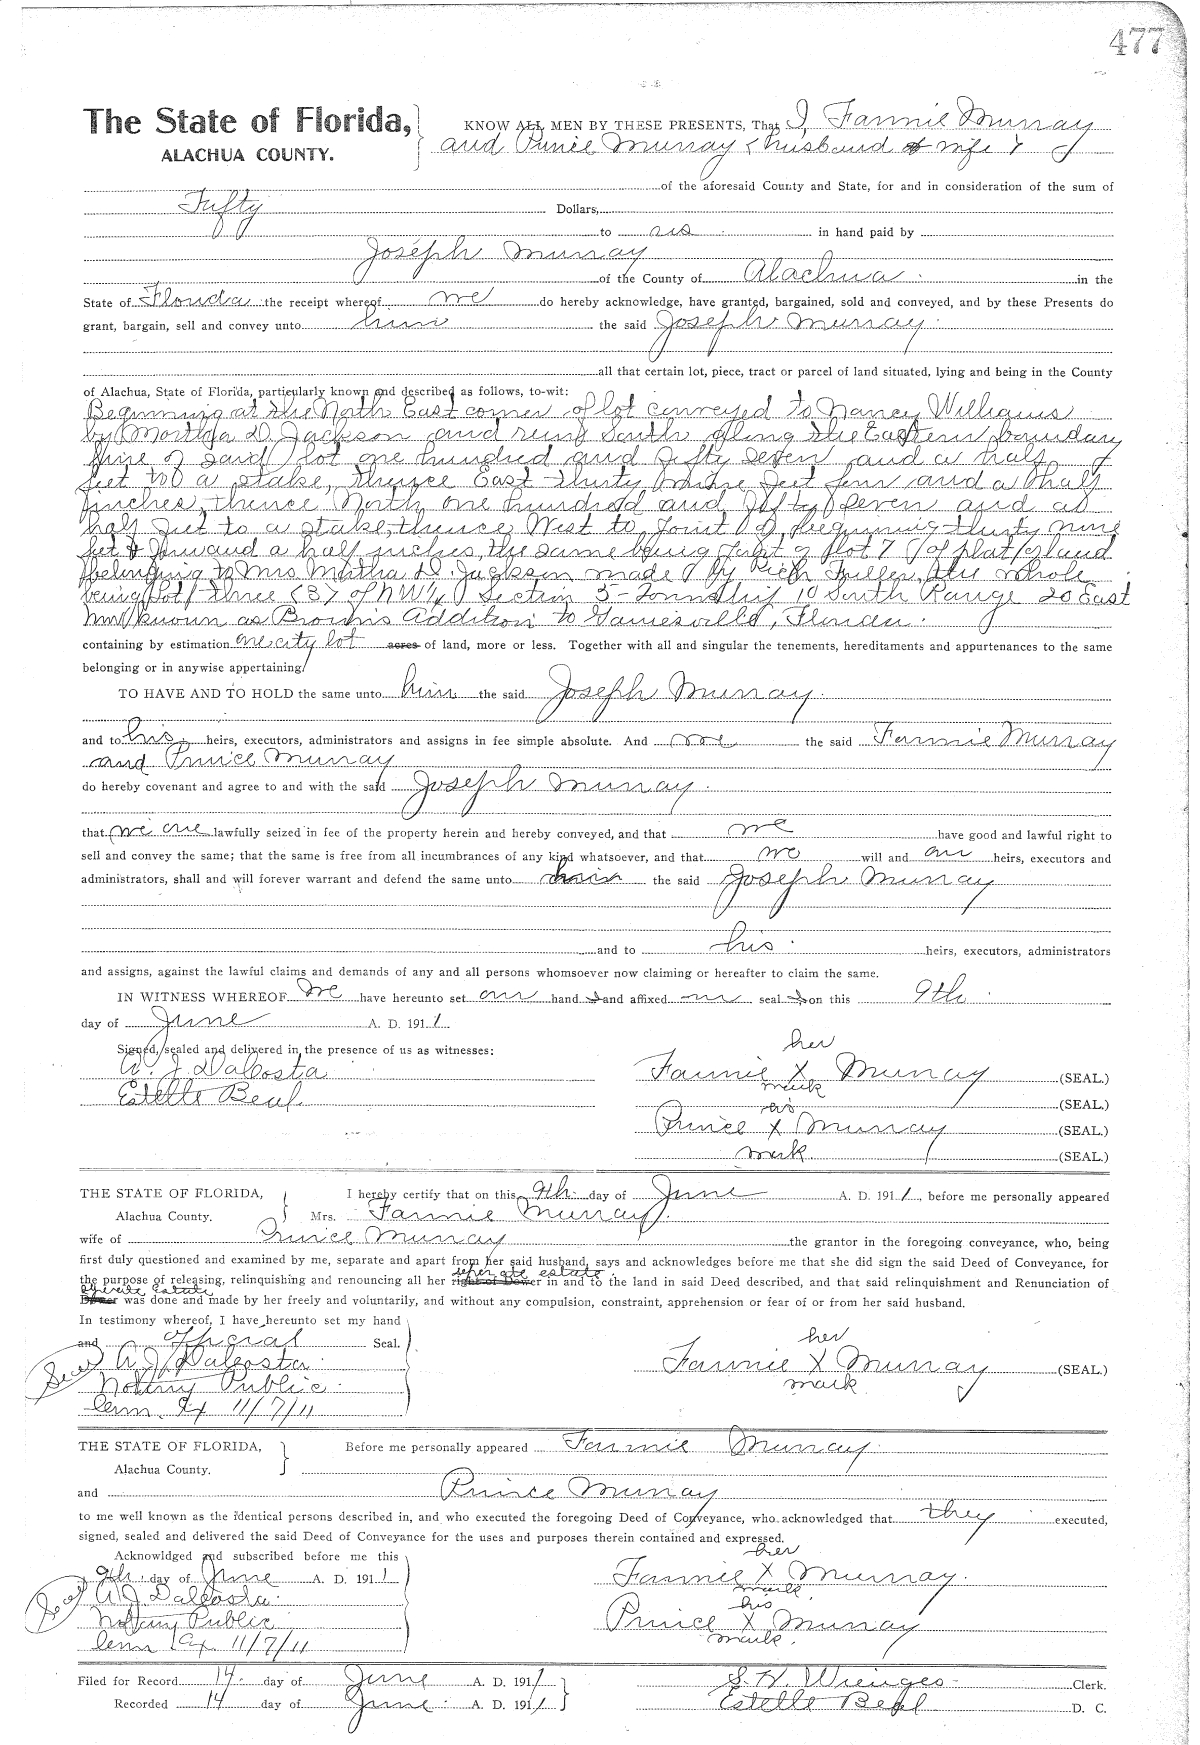 477
The State of Florida,
ALACHUA COUNTY.
KNOW ALL MEN BY THESE PRESENTS, That I, Fannie Murray
and Prince Murray (husband & wife)
of the aforesaid County and State, for and in consideration of the sum of
Fifty Dollars,
to us in hand paid by
Joseph Murray
of the County of Alachua in the
State of Florida the receipt whereof we do hereby acknowledge, have granted, bargained, sold and conveyed, and by these Presents do
grant, bargain, sell and convey unto him the said Joseph Murray
all that certain lot, piece, tract or parcel of land situated, lying and being in the County
of Alachua, State of Florida, particularly known and described as follows, to-wit:
Beginning at the North East corner of lot conveyed to Nancy Williams
by Martha D. Jackson and runs South along the Eastern boundary
line of said lot one hundred and fifty seven and a half
feet to a stake, thence East thirty nine feet four and a half
inches, thence North one hundred and fifty seven and a
half feet to a stake, thence West to point of beginning thirty nine
feet & four and a half inches, the same being part of lot 7 of plat of land
belonging to Mrs Martha D. Jackson made by Rich Fuller, the whole
being lot three (3) of NW¼ Section 5 - Township 10 South Range 20 East
known as Brown's Addition to Gainesville, Florida.
containing by estimation one city lot acres of land, more or less. Together with all and singular the tenements, hereditaments and appurtenances to the same
belonging or in anywise appertaining
TO HAVE AND TO HOLD the same unto him the said Joseph Murray.
and to his heirs, executors, administrators and assigns in fee simple absolute. And we the said Fannie Murray
and Prince Murray
do hereby covenant and agree to and with the said Joseph Murray.
that we are lawfully seized in fee of the property herein and hereby conveyed, and that we have good and lawful right to
sell and convey the same; that the same is free from all incumbrances of any kind whatsoever, and that we will and our heirs, executors and
administrators, shall and will forever warrant and defend the same unto the said Joseph Murray
and to his heirs, executors, administrators
and assigns, against the lawful claims and demands of any and all persons whomsoever now claiming or hereafter to claim the same.
IN WITNESS WHEREOF We have hereunto set our hand s and affixed our seal s on this 9th
day of June A. D. 1911.
Signed, sealed and delivered in the presence of us as witnesses:
A. J. DaCosta
Estelle Beal
her
Fannie X Murray (SEAL.)
mark
(SEAL.)
his
Prince X Murray (SEAL.)
mark (SEAL.)
THE STATE OF FLORIDA,
Alachua County.
I hereby certify that on this 9th day of June A. D. 1911, before me personally appeared
Mrs. Fannie Murray
wife of Prince Murray the grantor in the foregoing conveyance, who, being
first duly questioned and examined by me, separate and apart from her said husband, says and acknowledges before me that she did sign the said Deed of Conveyance, for
seperate estate
the purpose of releasing, relinquishing and renouncing all her right of Dower in and to the land in said Deed described, and that said relinquishment and Renunciation of
Estate
Dower was done and made by her freely and voluntarily, and without any compulsion, constraint, apprehension or fear of or from her said husband.
In testimony whereof, I have hereunto set my hand
and official Seal.
Seal A. J. DaCosta
Notary Public
Com. Ex 11/7/11
her
Fannie X Murray (SEAL)
mark
THE STATE OF FLORIDA,
Alachua County.
Before me personally appeared Fannie Murray
and Prince Murray
to me well known as the identical persons described in, and who executed the foregoing Deed of Conveyance, who acknowledged that they executed,
signed, sealed and delivered the said Deed of Conveyance for the uses and purposes therein contained and expressed.
Acknowldged and subscribed before me this
9th day of June A. D. 1911
Seal A. J. DaCosta.
Notary Public
Com Ex. 11/7/11
her
Fannie X Murray.
mark
his
Prince X Murray
mark.
Filed for Record 14 day of June A. D. 1911
Recorded 14 day of June A. D. 1911
S. H. Wienges Clerk.
Estelle Beal D. C.